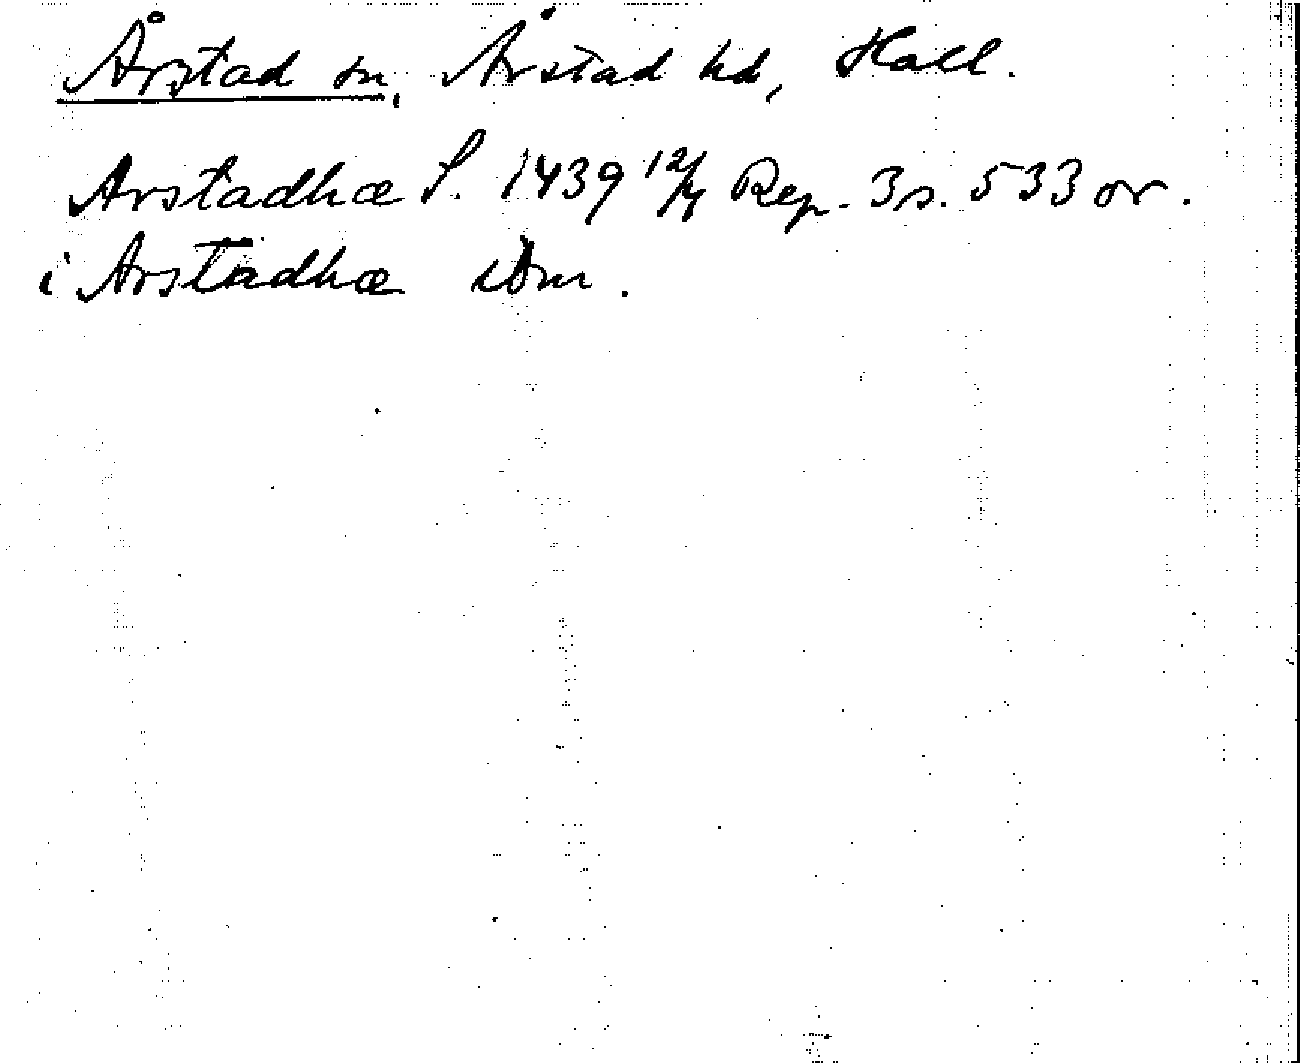 Årstad sn, Årstad hd, Hall.
Arstadhæ S. 1439 12/4 Rep. 3 s. 533 or.
i Arstadhæ ibm.